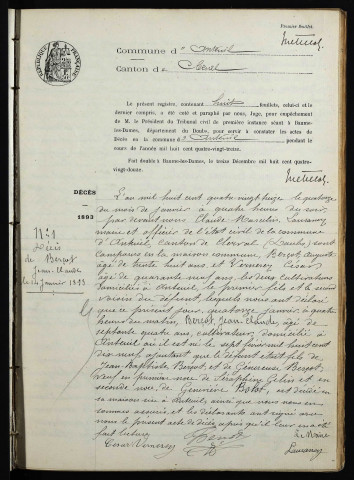 Premier feuillet.
Commune d'Anteuil
Canton de Clerval
RÉPUBLIQUE FRANÇAISE
Le présent registre, contenant huit feuillets, celui-ci et le
dernier compris, a été coté et paraphé par nous, Juge, pour empêchement
de M. le Président du Tribunal civil de première instance séant à Baume-
les-Dames, département du Doubs, pour servir à constater les actes de
Décès en la commune d'Anteuil pendant le
cours de l'année mil huit cent quatre-vingt-treize.
Fait double à Baume-les-Dames, le treize Décembre mil huit cent quatre-
vingt-douze.
DÉCÈS
1893
N° 1
Décès
de Berçot
Jean-Claude
le 14 janvier 1893
L'an mil huit cent quatre vingt treize le quatorze
du mois de janvier à quatre heures du soir,
par devant nous Claude Marcelin
maire et officier de l'état civil de la commune
d'Anteuil, canton de Clerval (Doubs) sont
comparus en la maison commune, Berçot Auguste
âgé de trente huit ans et Vemerey César
âgé de quarante neuf ans, les deux cultivateurs
domiciliés à Anteuil, le premier fils et le second
voisin du défunt, lesquels nous ont déclaré
que ce présent jour, quatorze janvier à quatre
heures du matin, Berçot Jean-Claude, âgé de
septante quatre ans, cultivateur, domicilié à
Anteuil où il est né le sept février mil huit cent
dix neuf, ajoutant que le défunt était fils de
Jean-Baptiste Berçot, et de Généreuse Berçot,
veuf en premières noces de Séraphine Gelin et en
seconde noces de Geneviève Bolot, est décédé en
sa maison sise à Anteuil, ainsi que nous nous en
sommes assuré, et les déclarants ont signé avec
nous le présent acte de décès après qu'il leur en a été
fait lecture
César Vemerey
Berçot
Le Maire